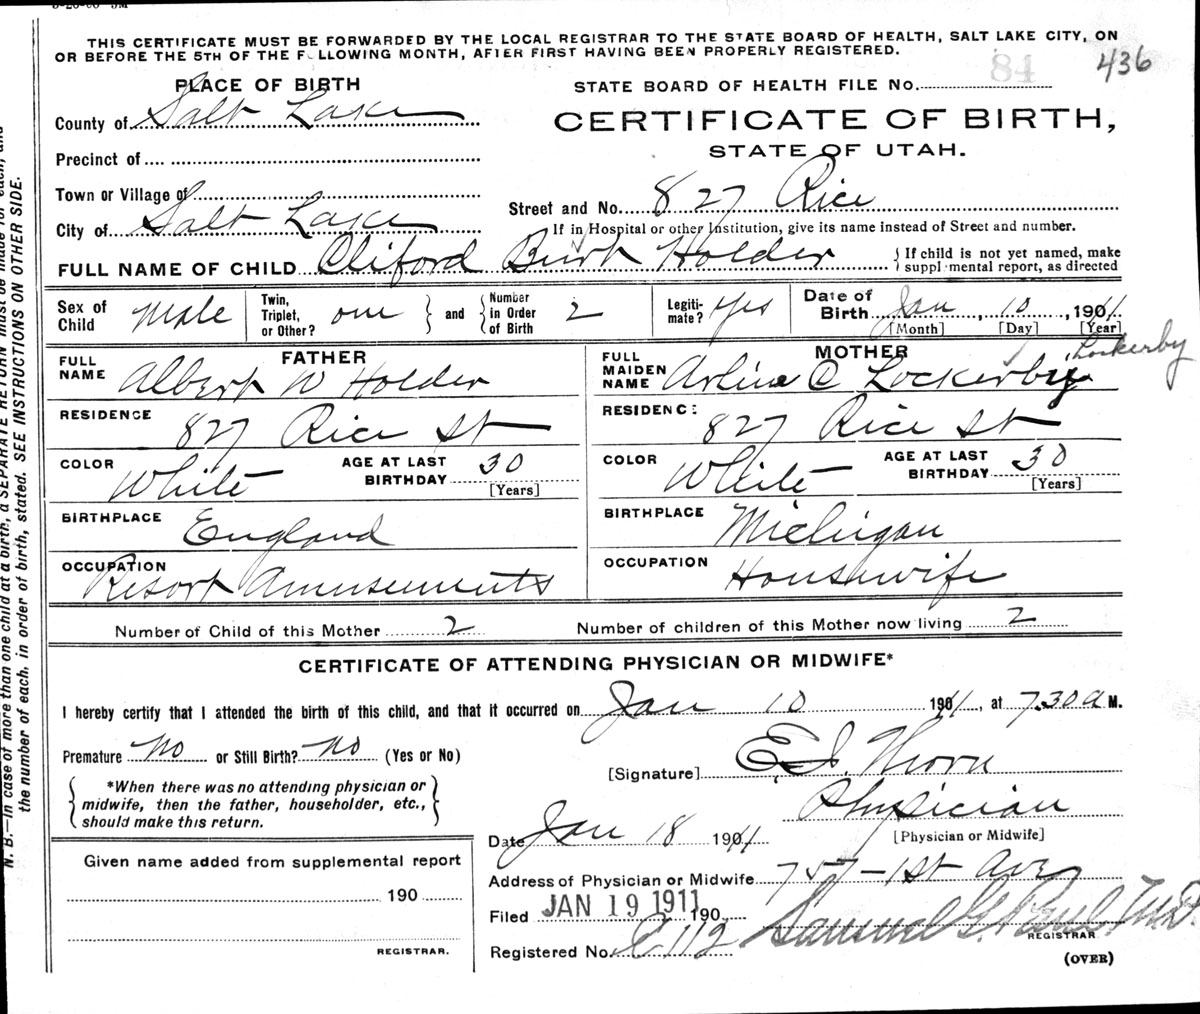 THIS CERTIFICATE MUST BE FORWARDED BY THE LOCAL REGISTRAR TO THE STATE BOARD OF HEALTH, SALT LAKE CITY, ON
OR BEFORE THE 5TH OF THE FOLLOWING MONTH, AFTER FIRST HAVING BEEN PROPERLY REGISTERED.
84 436
PLACE OF BIRTH
STATE BOARD OF HEALTH FILE NO.
County of Salt Lake
CERTIFICATE OF BIRTH,
STATE OF UTAH.
Precinct of
Town or Village of
Street and No. 827 Rice
City of Salt Lake
If in Hospital or other Institution, give its name instead of Street and number.
FULL NAME OF CHILD Cliford Burt Holder
If child is not yet named, make
supplemental report, as directed
Sex of Child Male
Twin, Triplet, or Other? one
and Number in Order of Birth 2
Legiti-mate? Yes
Date of Birth Jan 10, 1911
[Month] [Day] [Year]
FATHER
FULL NAME Albert W Holder
RESIDENCE 827 Rice St
COLOR White AGE AT LAST BIRTHDAY 30
[Years]
BIRTHPLACE England
OCCUPATION Resort Amusements
MOTHER
Lockerby
FULL MAIDEN NAME Arline C Lockerby
RESIDENCE 827 Rice St
COLOR White AGE AT LAST BIRTHDAY 30
[Years]
BIRTHPLACE Michigan
OCCUPATION Housewife
Number of Child of this Mother 2 Number of children of this Mother now living 2
CERTIFICATE OF ATTENDING PHYSICIAN OR MIDWIFE*
I hereby certify that I attended the birth of this child, and that it occurred on Jan 10 1911, at 7.30 a M.
Premature No or Still Birth? No (Yes or No)
[Signature]
*When there was no attending physician or
midwife, then the father, householder, etc.,
should make this return.
Physician
[Physician or Midwife]
Date Jan 18 1911
Given name added from supplemental report
190
REGISTRAR.
Address of Physician or Midwife 757-1st Ave
Filed JAN 19 1911 190
Samuel G. Paul, M.D.
REGISTRAR
Registered No. 112
(OVER)
N. B.—In case of more than one child at a birth, a SEPARATE RETURN must be made for each, and
the number of each, in order of birth, stated. SEE INSTRUCTIONS ON OTHER SIDE.